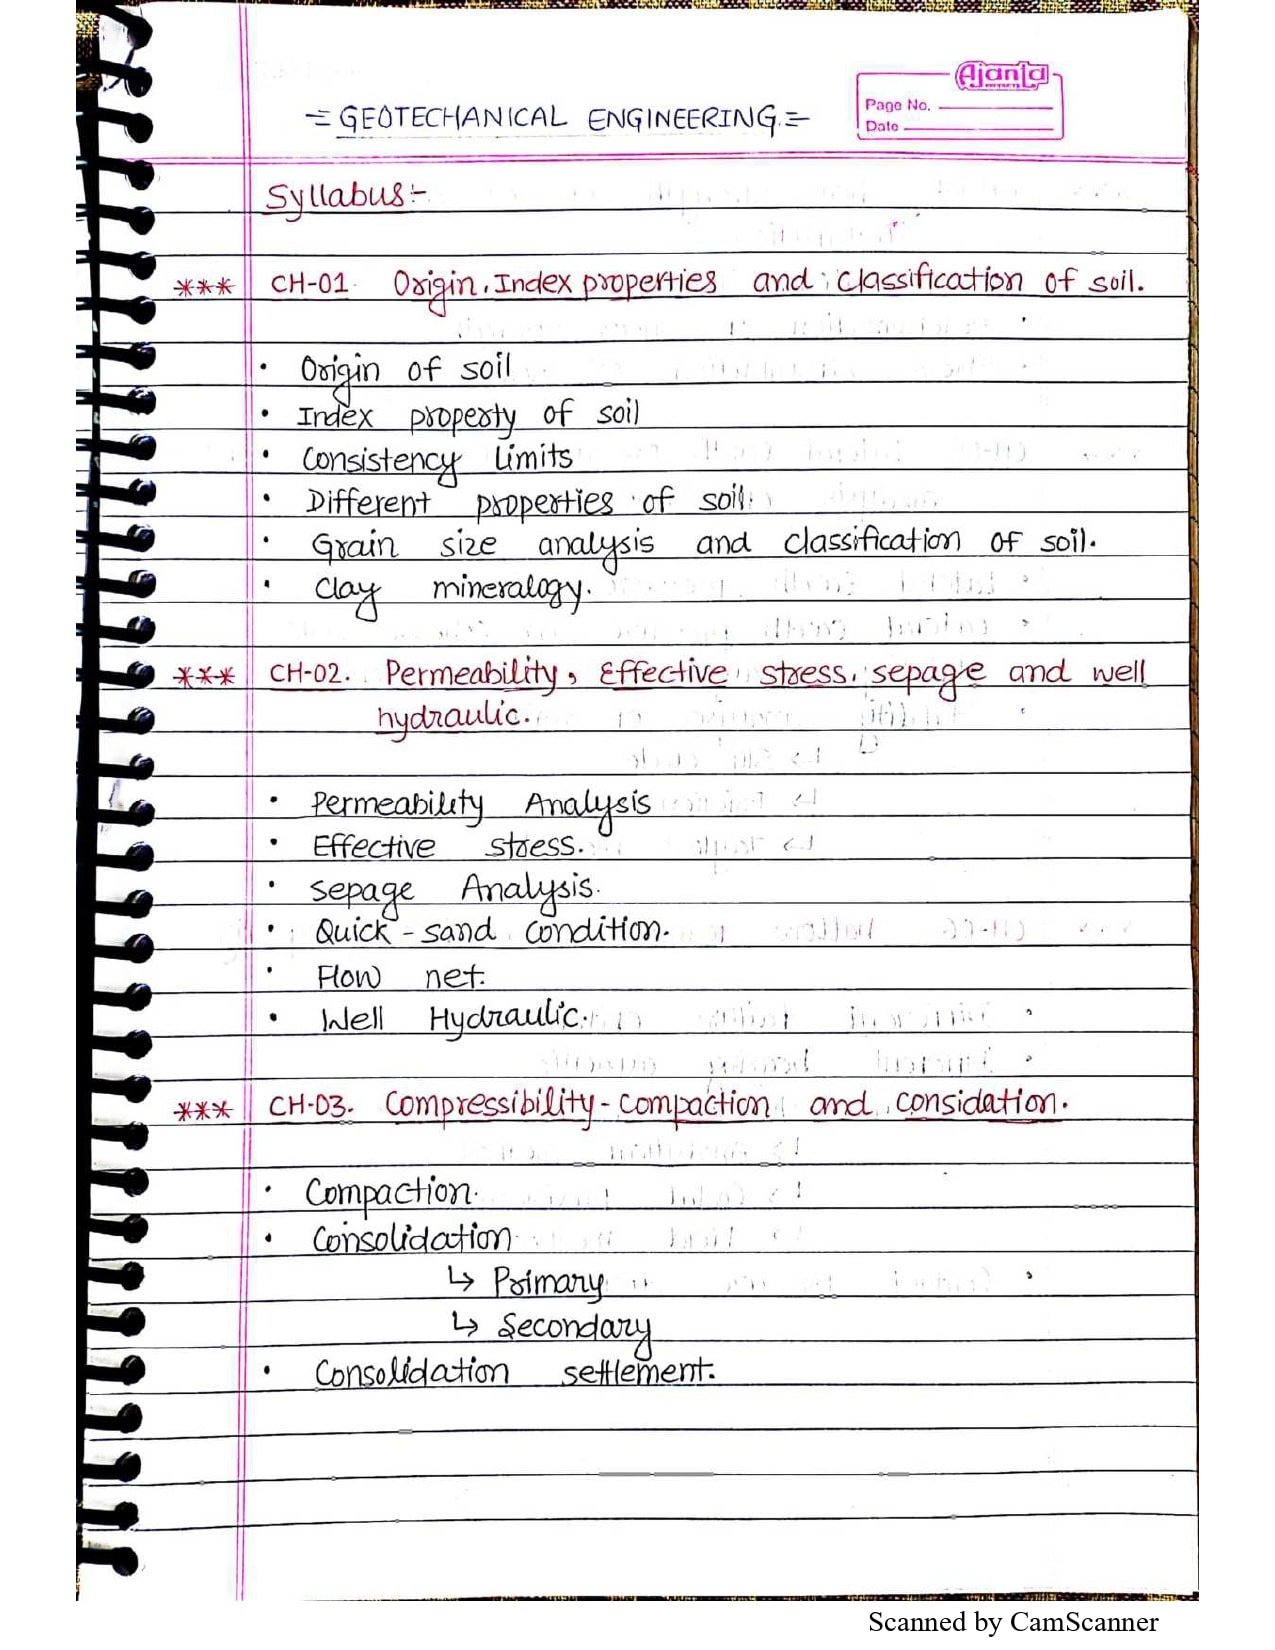 = GEOTECHANICAL ENGINEERING. =
Ajanta
Page No.
Date
Syllabus:-
*** CH-01. Origin, Index properties and classification of soil.
• Origin of soil
• Index property of soil
• Consistency limits
• Different properties of soil.
• Grain size analysis and classification of soil.
• Clay mineralogy.
*** CH-02. Permeability, Effective stress, sepage and well
hydraulic.
• Permeability Analysis
• Effective stress.
• Sepage Analysis.
• Quick-sand condition.
• Flow net.
• Well Hydraulic.
*** CH-03. Compressibility-compaction and considation.
• Compaction.
• Consolidation
↳ Primary
↳ Secondary
• Consolidation settlement.
Scanned by CamScanner